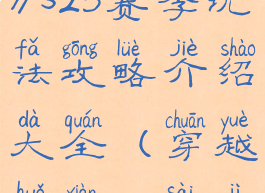 S25赛季玩
fǎ gōng lüè jiè shào
法攻略介绍
dà quán chuān yuè
大全(穿越
huǒ xiàn sài jì